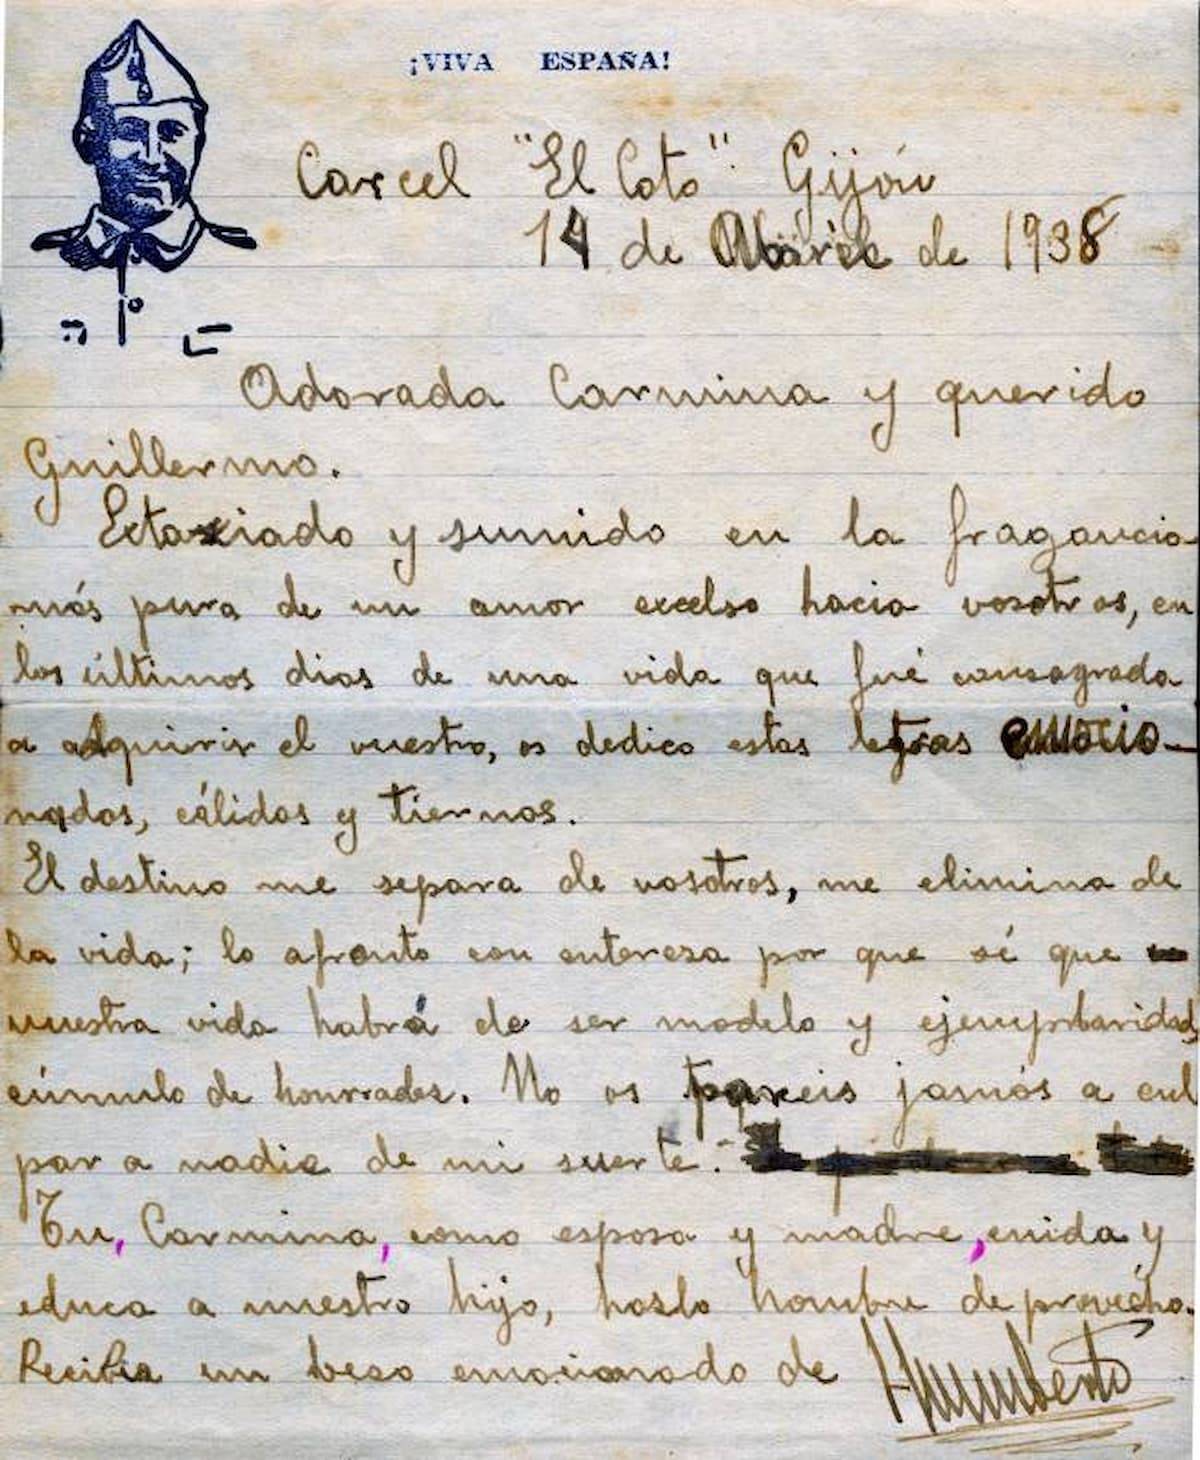 ¡VIVA ESPAÑA!
Carcel "El Coto" Gijón
14 de de 1938
Adorada Carmina y querido
Guillermo.
Extaxiado y sumido en la fragancia
más pura de un amor excelso hacia vosotros, en
los últimos dias de una vida que fué consagrada
a adquirir el vuestro, os dedico estas letras emocio-
nadas, cálidas y tiernas.
El destino me separa de vosotros, me elimina de
la vida; lo afronto con entereza por que sé que
vuestra vida habrá de ser modelo y ejemplaridad,
cúmulo de honrradez. No os pareis jamás a cul
par a nadie de mi suerte.
Tu, Carmina, como esposa y madre, cuida y
educa a nuestro hijo, hazlo hombre de provecho.
Recibir un beso emocionado de Humberto